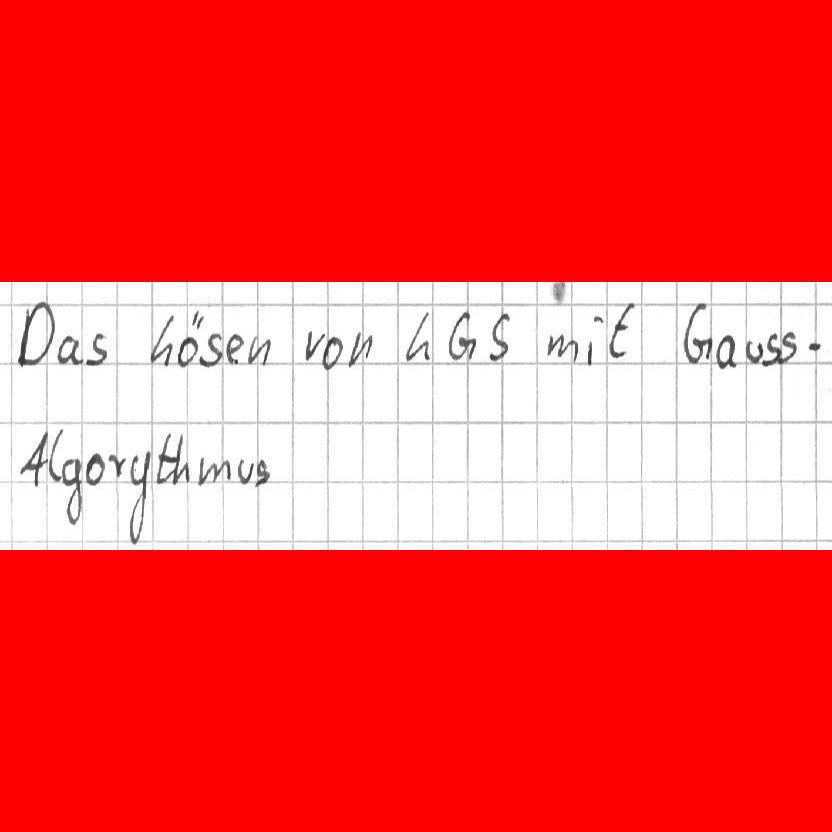 Das Lösen von LGS mit Gauss-
Algorythmus